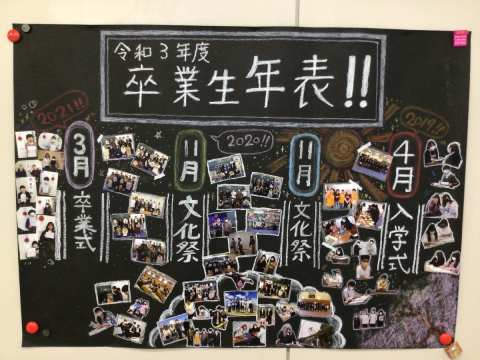 令和3年度
卒業生年表!!
2019!!
4月
入学式
11月
文化祭
2020!!
11月
文化祭
2021!!
3月
卒業式